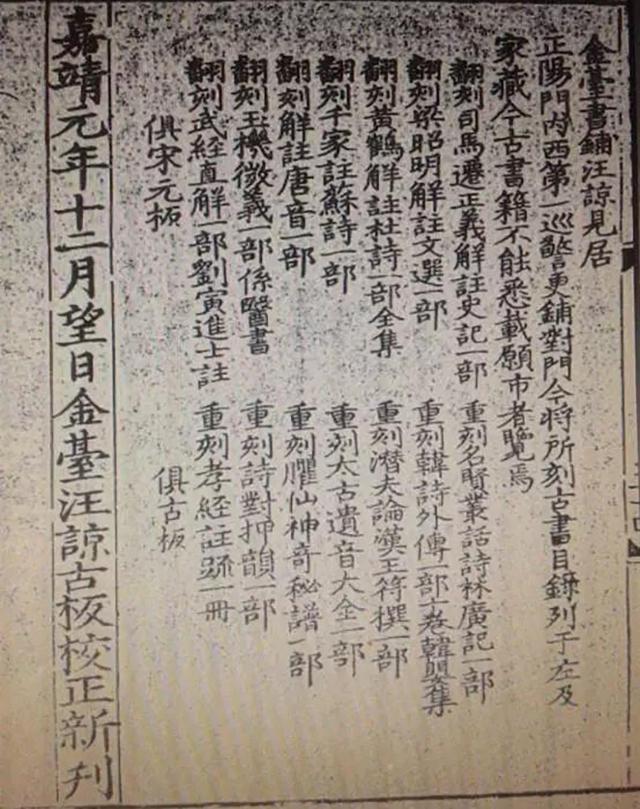 金臺書鋪汪諒見居
正陽門內西第一巡警更鋪對門今将所刻古書目錄列于左及
家藏今古書籍不能悉載願市者覽焉
翻刻司馬遷正義解註史記一部
重刻名賢叢話詩林廣記一部
翻刻梁昭明解註文選一部
重刻韓詩外傳一部十卷韓嬰集
翻刻黃鶴解註杜詩一部全集
重刻潛夫論漢王符撰一部
翻刻千家註蘇詩一部
重刻太古遺音大全一部
翻刻解註唐音一部
重刻臞仙神奇秘譜一部
翻刻玉機微義一部係醫書
重刻詩對押韻一部
翻刻武經直解一部劉寅進士註
重刻孝經註疏一冊
俱宋元板
俱古板
嘉靖元年十二月望日金臺汪諒古板校正新刋